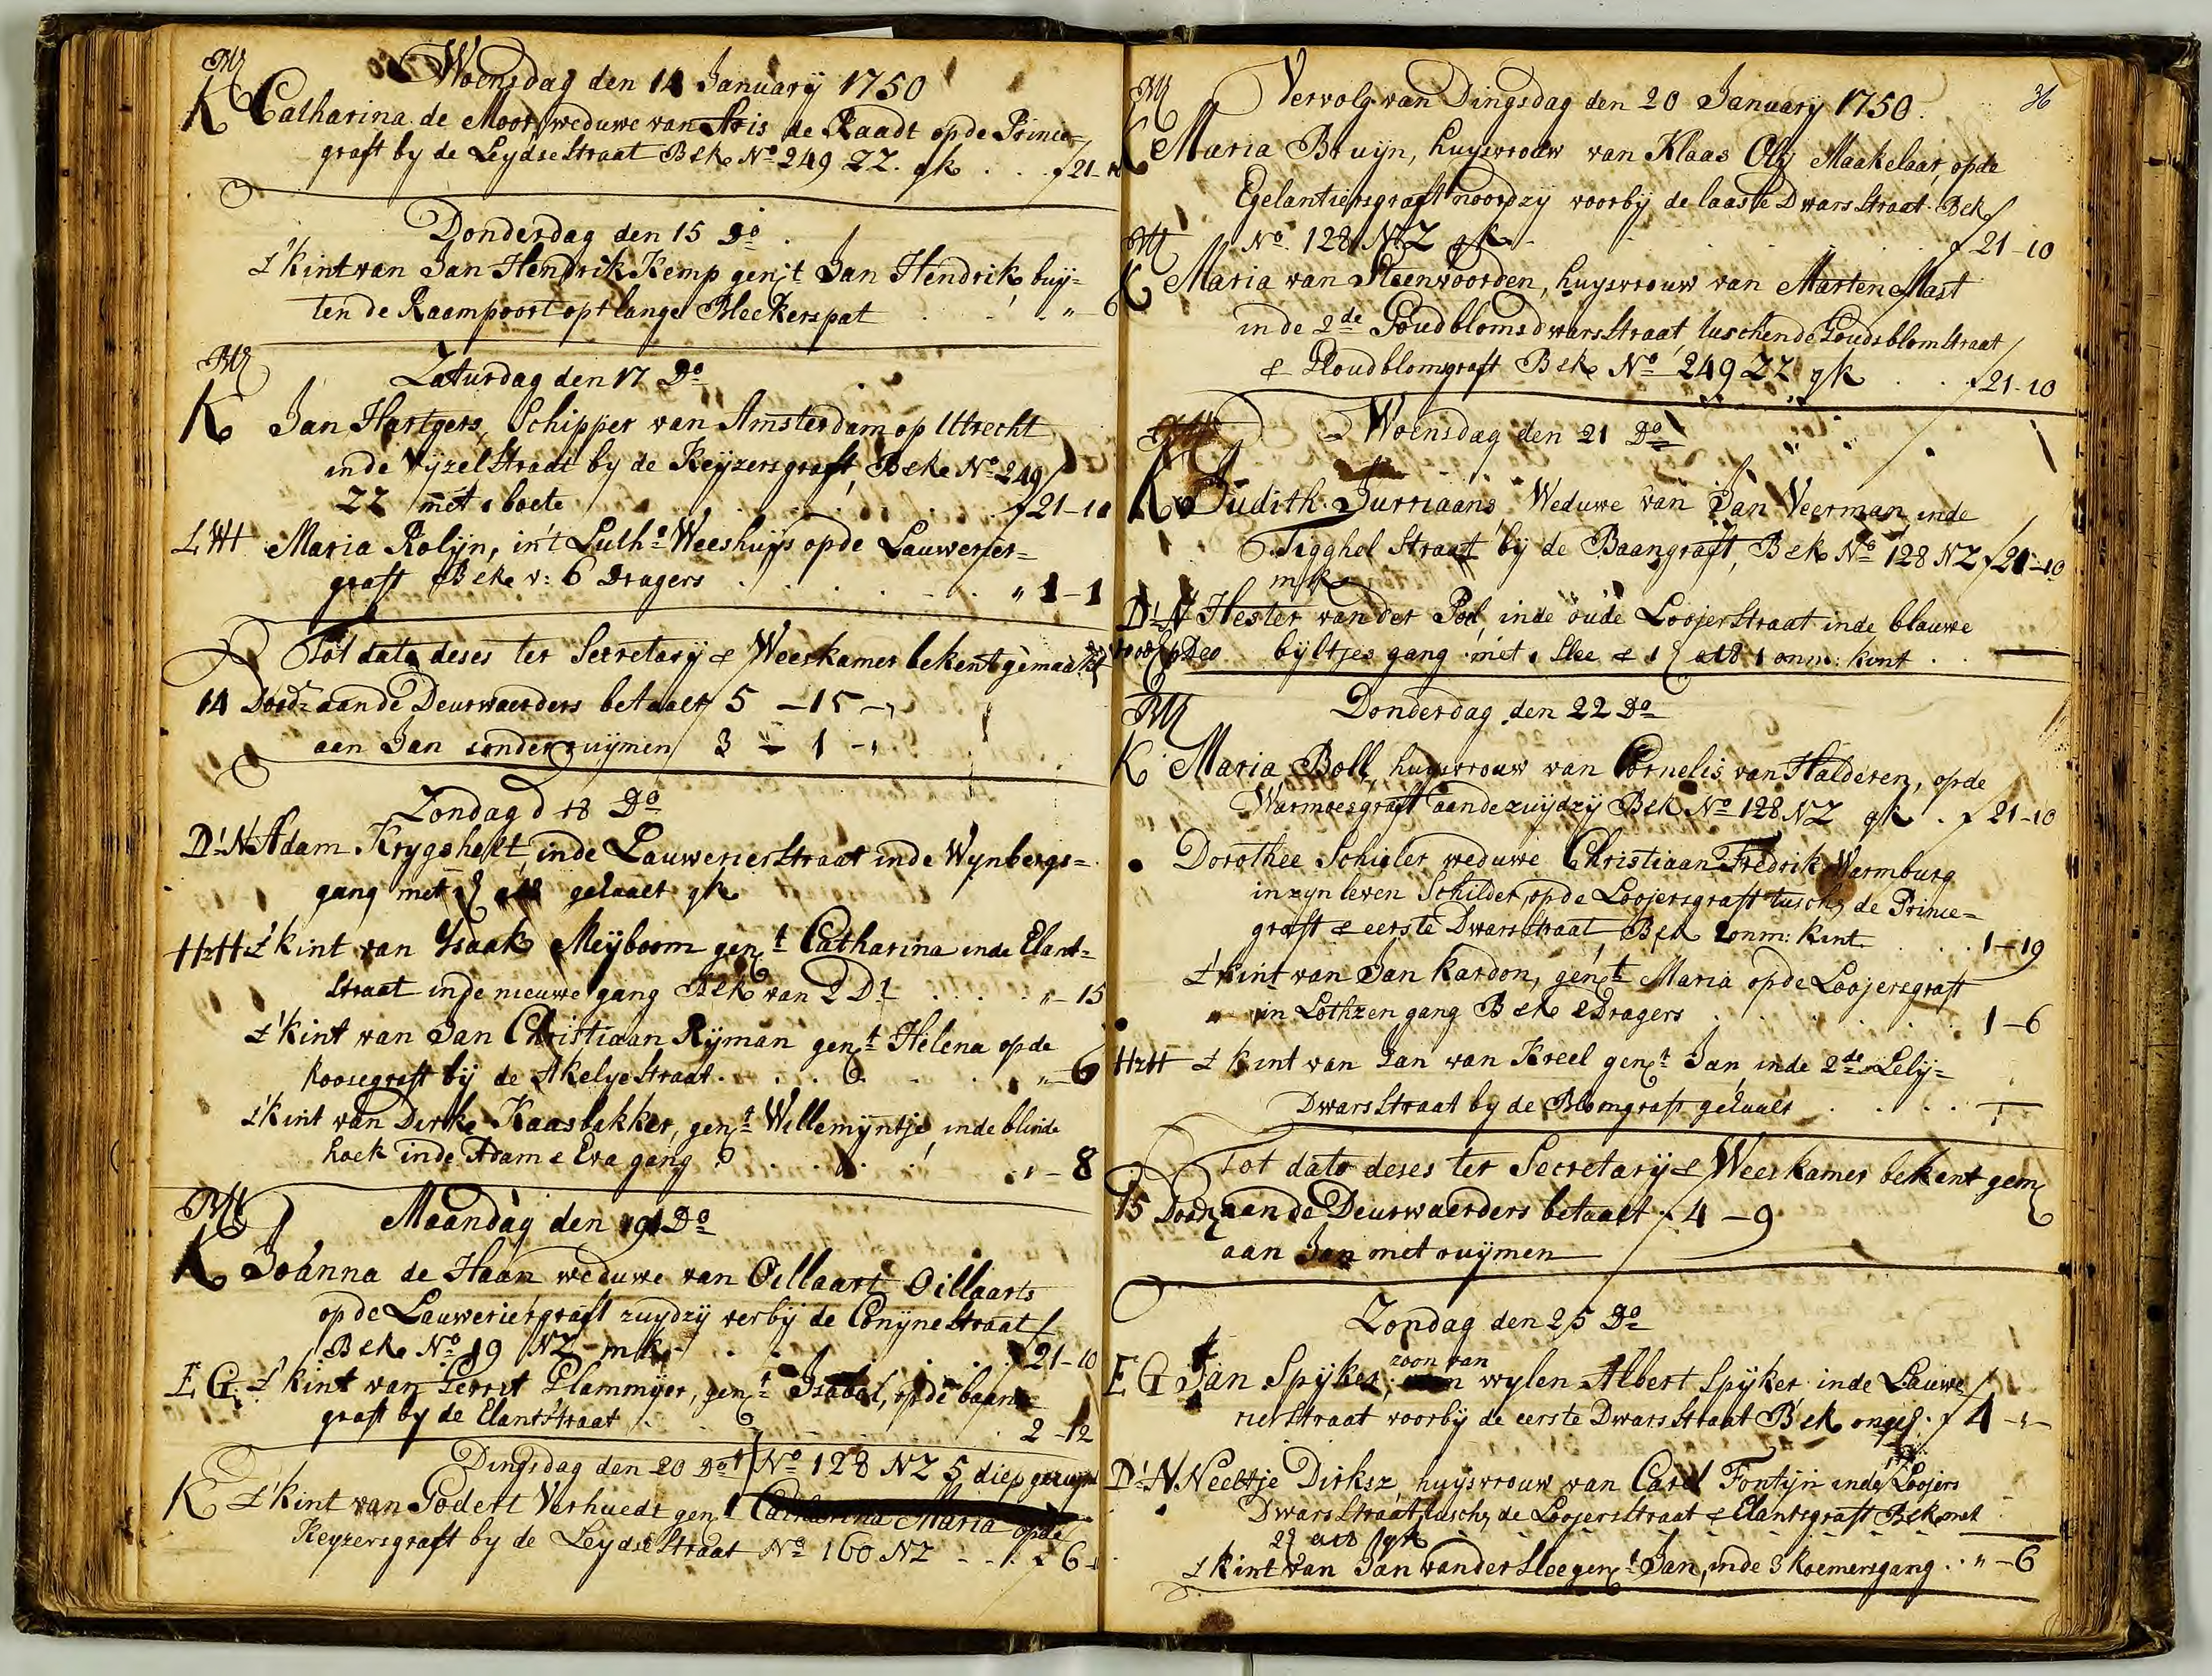 Woensdag den 14 January 1750
M
K Catharina de Moor, weduwe van Aris de Raadt opde Prince=
graft by de Leydsestraat Bek No 249 ZZ. gk . . . f 21-10
Donderdag den 15 Do
t'kint van Jan Hendrik Kemp gent Jan Hendrik buy=
ten de Raampoort opt lange Bleekerspat . . . " - 6
M
Zaturdag den 17 Do
K Jan Hartgers, Schipper van Amsterdam op Uttrecht
inde Vyzelstraat by de Keyzersgraft, Bek No 249
ZZ met 1 boete f 21-10
LWH Maria Rolyn, in't Luthse Weeshuys opde Lauwerier=
graft Bek v: 6 Dragers . . . . " 1-1
Tot dato deses ter Secretary & Weeskamer bekent gemaakt
14 Dood: aan de Deurwaerders betaalt f 5 -15 -,
aan Jan sonder ruymen f 3 - 1 -"
Zondag d 18 Do
D'N Adam Krygshelt, inde Lauwerierstraat inde Wynbergs=
gang met gehaalt gk
HzH t'kint van Ysaak Meyboom gent Catharina inde Elant=
straat inde nieuwe gang Bek van 2 Dr . . . . " - 15
t'kint van Jan Christiaan Ryman gent Helena opde
Roosegraft by de Akelyestraat . . . . . . " - 6
t'kint van Dirk Kaasbakker, gent Willemyntje, inde blinde
hoek inde Adam & Eva gang . . . . . " - 8
M
Maandag den 19 Do
K Johanna de Haan weduwe van Oillaart Oillaarts
opde Lauweriergraft zuydzy verby de Conynestraat
Bek No 19 NZ - mk - . . . . f 21-10
E G t'kint van Gerret Plammyer, gent Isabel, opde baan=
graft by de Elantstraat . . . . . 2 -12
Dingsdag den 20 Do No 128 NZ 5 diep geruymt
K t'kint van Godert Verhuedt gent Catharina Maria opde
Keyzersgraft by de Leydsestraat No 160 NZ - - . f 6 -
36
M
Vervolg van Dingsdag den 20 January 1750.
K Maria Bruyn, huysvrouw van Klaas Oly Maakelaar, opde
Egelantiersgraft noordzy voorby de laaste Dwarsstraat Bek
No 128 NZ gk . . . . . f 21-10
M
K Maria van Steenvoorden, huysvrouw van Marten Mast
inde 2de Goudbloms dwarsstraat, tuschen de Goudsblomstraat
& Goudblomsgraft Bek No 249 ZZ gk . . . f 21-10
Woensdag den 21 Do
K Judith Jurriaans Weduwe van Jan Veerman inde
Tigghel Straat by de Baangraft, Bek No 128 NZ f 21-10
mk
D'N Hester van der Pol, inde oude Looyerstraat inde blauwe
voor op Deo byltjes gang met 1 Slee & 1 1 onm: kint . .
M
Donderdag den 22 Do
K Maria Boll, huysvrouw van Cornelis van Halderen, opde
Warmoesgraft aan de zuydzy Bek No 128 NZ gk . f 21-10
Dorothee Schieler weduwe Christiaan Fredrik Warmburg
in zyn leven Schilder, opde Looyersgraft tusch: de Prince=
graft & eerste Dwarsstraat Bek 1 onm: kint . . . . 1-19
t'kint van Jan Kardon, gent Maria opde Looyersgraft
in Lothzen gang Bek 2 Dragers . . . . . 1-6
HzH t'kint van Jan van Kreel gent Jan inde 2de Lely=
Dwarsstraat by de Blomgraft gehaalt . . . .
Tot dato deses ter Secretary & Weeskamer bekent gem
15 Dood: aan de Deurwaerders betaalt f 4 - 9
aan Jan met ruymen
Zondag den 25 Do
E G Jan Spyker, zoon van wylen Albert Spyker inde Lauwe
rierstraat voorby de eerste Dwarsstraat Bek ongef. f 4 -"-
D'N Neeltje Dirksz, huysvrouw van Carel Fontyn inde Looyers
Dwarsstraat, tusch: de Looyersstraat & Elantsgraft Bek met
gk
t'kint van Jan vander Slee gent Jan, inde 3 Koemersgang . . " - 6